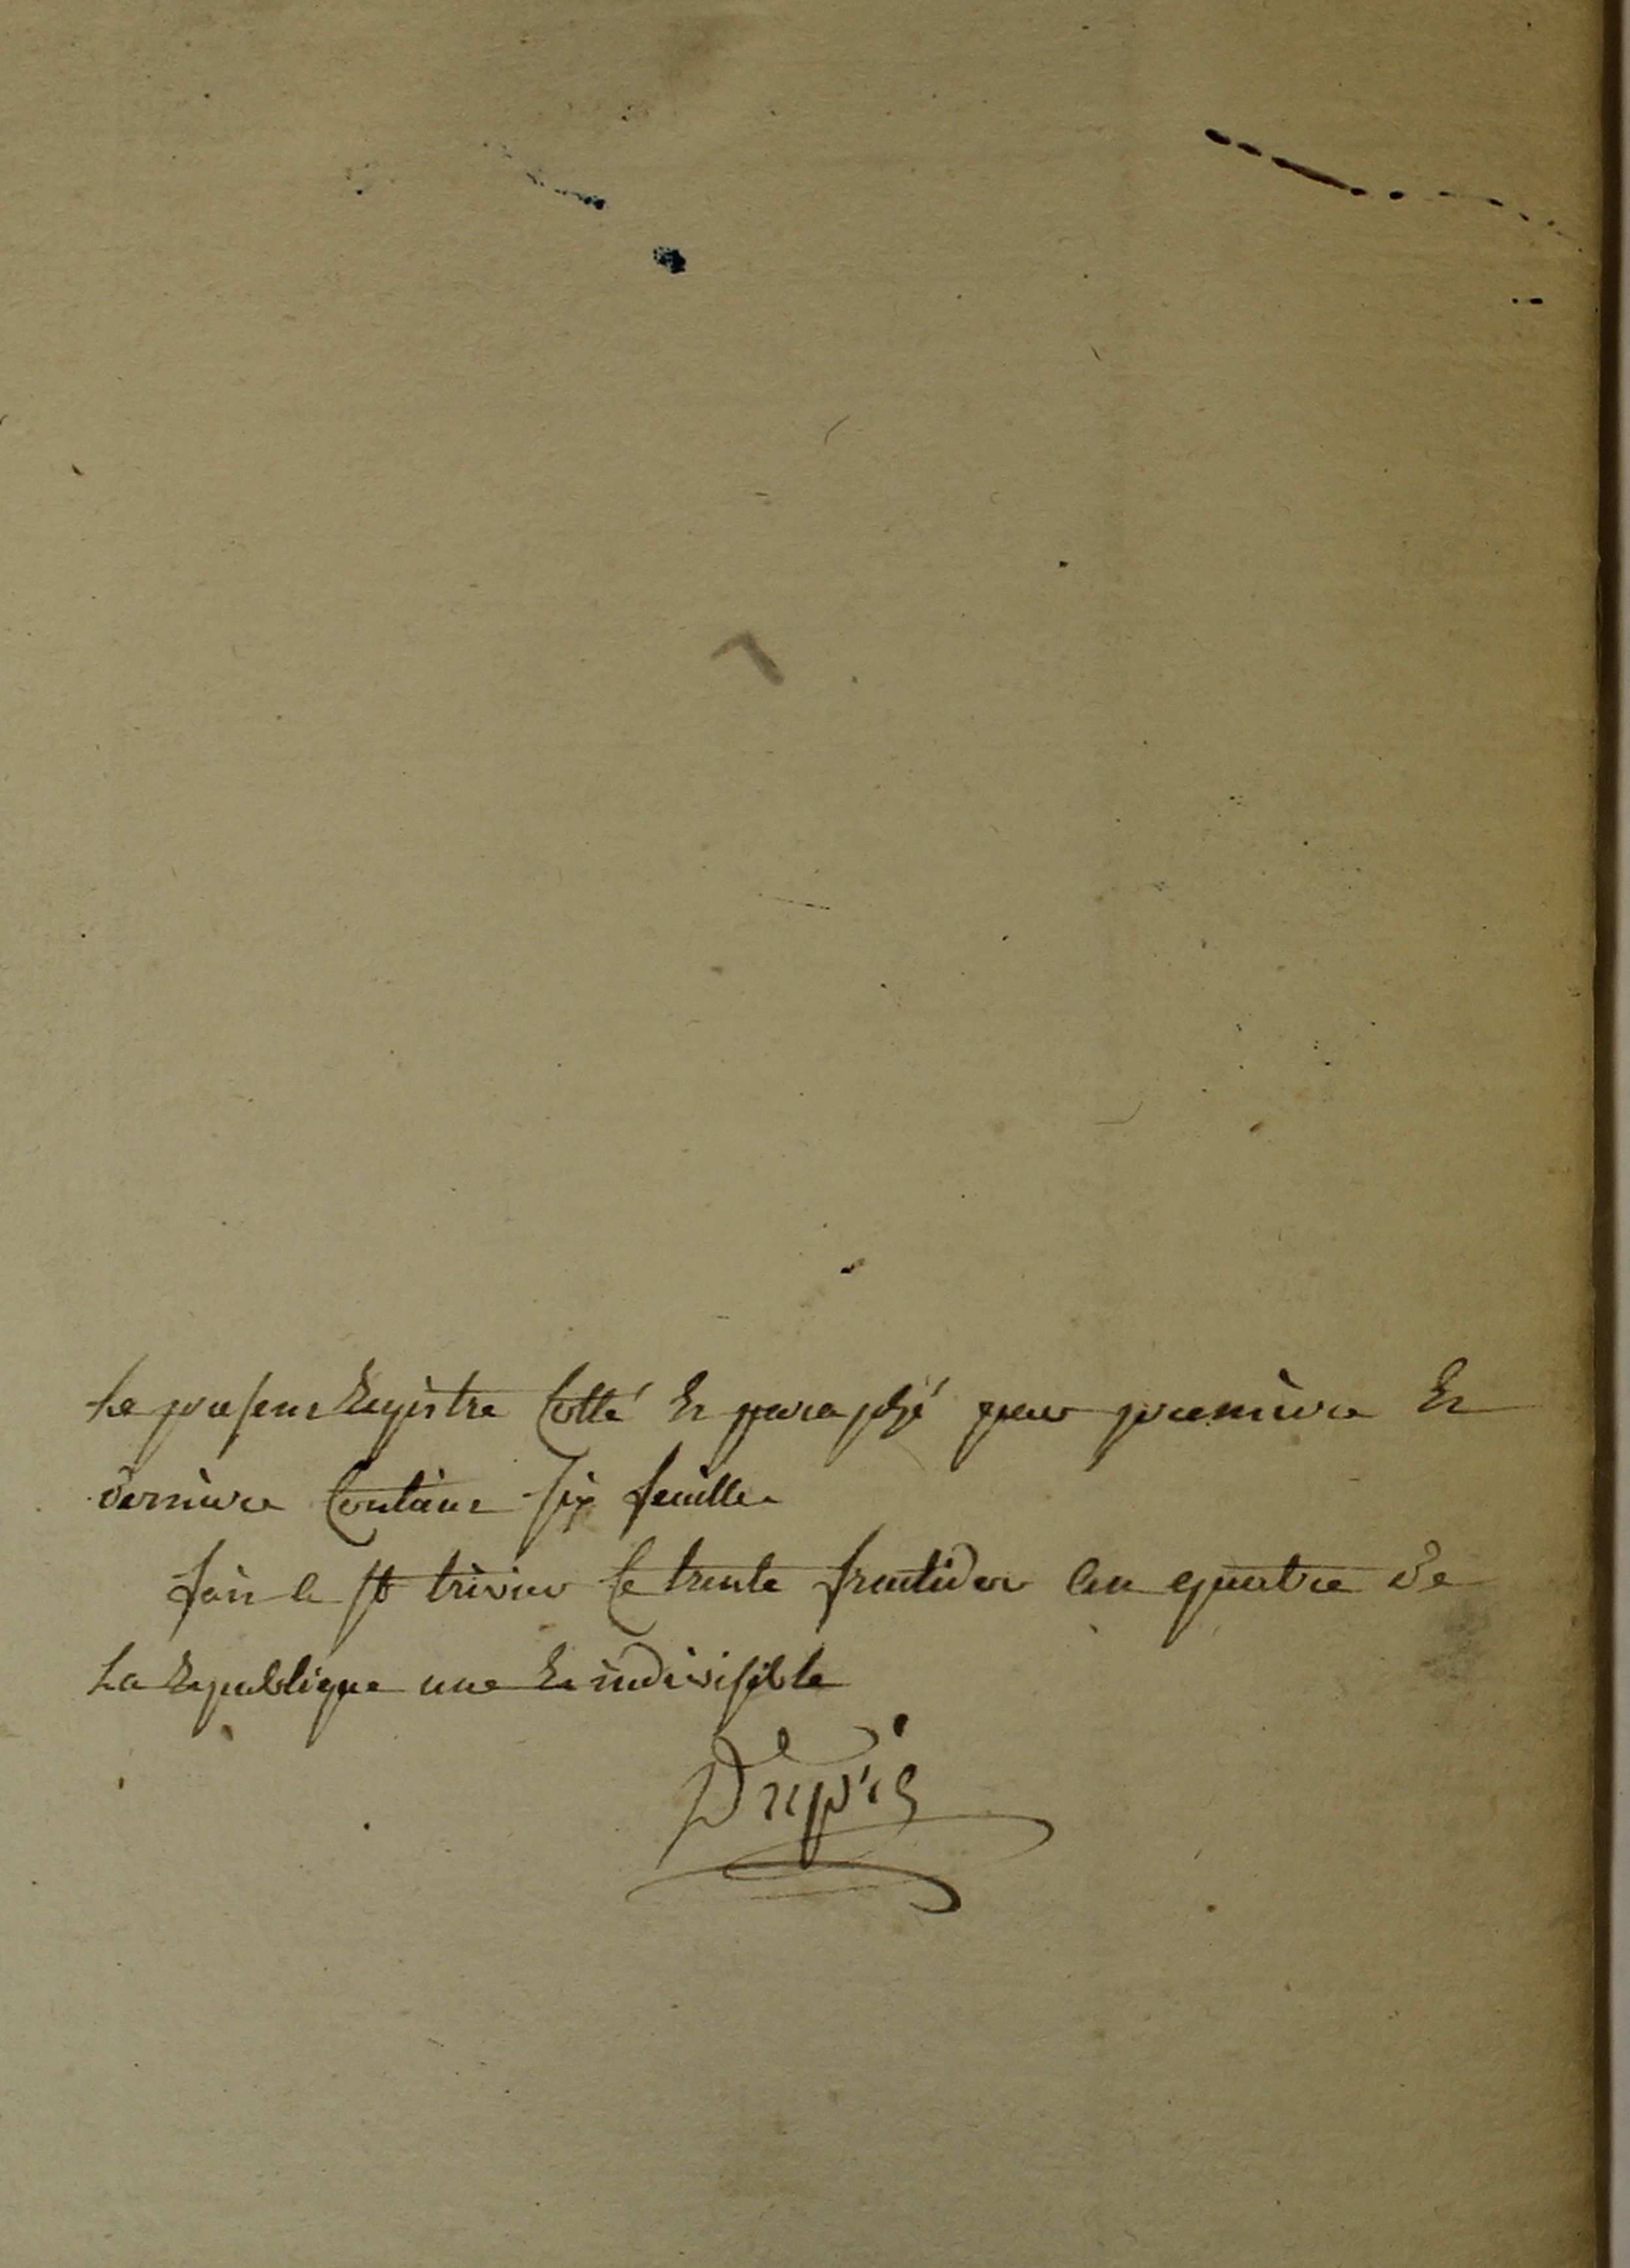 Le present Registre Cotté et paraphé par premiere et
derniere Contient six feuilles
fait a st trivier Le trente fructidor lan quatre de
La Republique une et indivisible
Dupuis